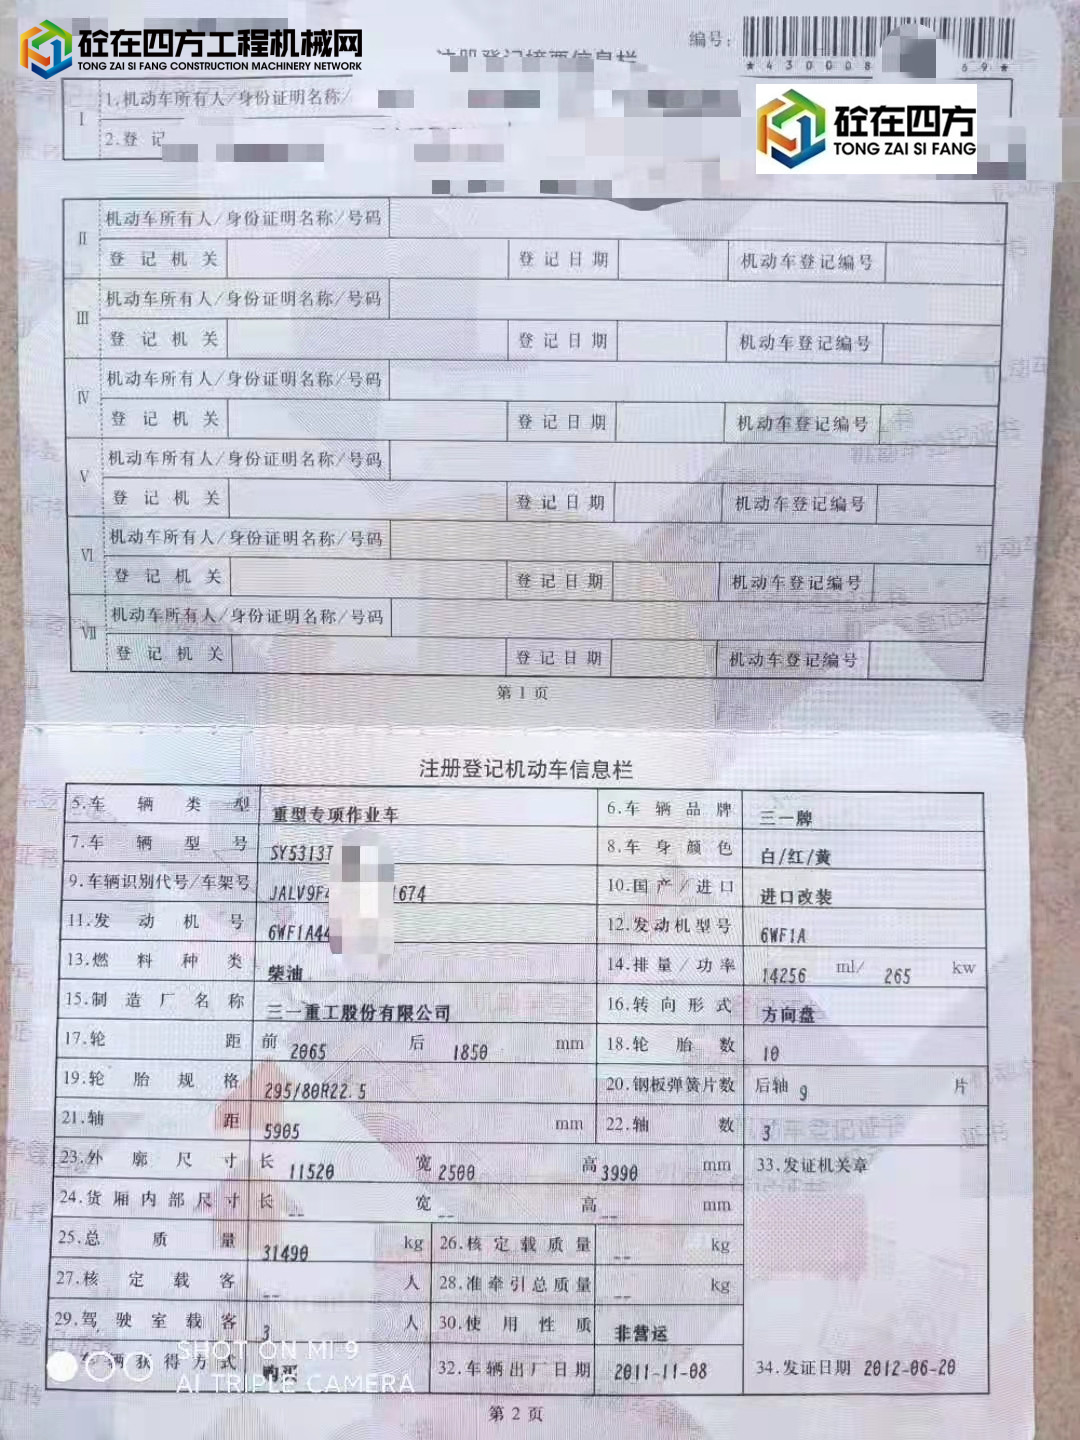 砼在四方工程机械网
TONG ZAI SI FANG CONSTRUCTION MACHINERY NETWORK
注册登记摘要信息栏
编号:
*430008 69*
砼在四方
TONG ZAI SI FANG
I 1.机动车所有人/身份证明名称/
2.登 记
II 机动车所有人/身份证明名称/号码
登记机关 登记日期 机动车登记编号
III 机动车所有人/身份证明名称/号码
登记机关 登记日期 机动车登记编号
IV 机动车所有人/身份证明名称/号码
登记机关 登记日期 机动车登记编号
V 机动车所有人/身份证明名称/号码
登记机关 登记日期 机动车登记编号
VI 机动车所有人/身份证明名称/号码
登记机关 登记日期 机动车登记编号
VII 机动车所有人/身份证明名称/号码
登记机关 登记日期 机动车登记编号
第 1 页
注册登记机动车信息栏
5.车辆类型 重型专项作业车 6.车辆品牌 三一牌
7.车辆型号 SY5313T 8.车身颜色 白/红/黄
9.车辆识别代号/车架号 JALV9F4 1674 10.国产/进口 进口改装
11.发动机号 6WF1A44 12.发动机型号 6WF1A
13.燃料种类 柴油 14.排量/功率 14256 ml/ 265 kw
15.制造厂名称 三一重工股份有限公司 16.转向形式 方向盘
17.轮距 前 2065 后 1850 mm 18.轮胎数 10
19.轮胎规格 295/80R22.5 20.钢板弹簧片数 后轴 9 片
21.轴距 5905 mm 22.轴数 3
23.外廓尺寸 长 11520 宽 2500 高 3990 mm 33.发证机关章
24.货厢内部尺寸 长 -- 宽 -- 高 -- mm
25.总质量 31490 kg 26.核定载质量 -- kg
27.核定载客 -- 人 28.准牵引总质量 -- kg
29.驾驶室载客 3 人 30.使用性质 非营运
车辆获得方式 购买 32.车辆出厂日期 2011-11-08 34.发证日期 2012-06-20
SHOT ON MI 9
AI TRIPLE CAMERA
第 2 页